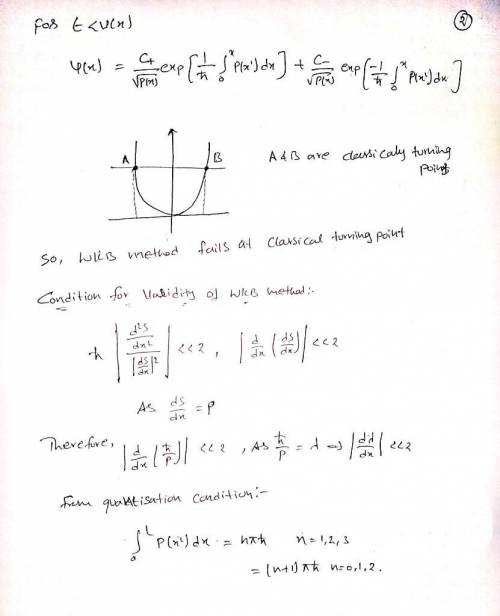 for E < V(x)
②
ψ(x) = C₊/√P(x) exp[1/ħ ∫₀ˣ P(x')dx] + C₋/√P(x) exp[-1/ħ ∫₀ˣ P(x')dx]
A B
A & B are classicaly turning
point
So, WKB method fails at classical turning point
Condition for Validity of WKB method:-
ħ |d²S/dx² / |dS/dx|²| <<2, |d/dx (dS/dx)| <<2
As dS/dx = P
Therefore, |d/dx (ħ/P)| <<2, As ħ/P = λ ⇒ |dλ/dx| <<2
from quantisation condition:-
∫₀ᴸ P(x')dx = nπħ n=1,2,3
= (n+1)πħ n=0,1,2.